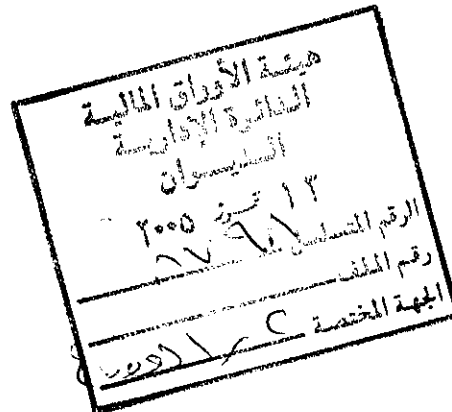 هيئة الأوراق المالية
الدائرة الإدارية
الديوان
١٣ تموز ٢٠٠٥
الرقم المتسلسل
رقم الملف
الجهة المختصة